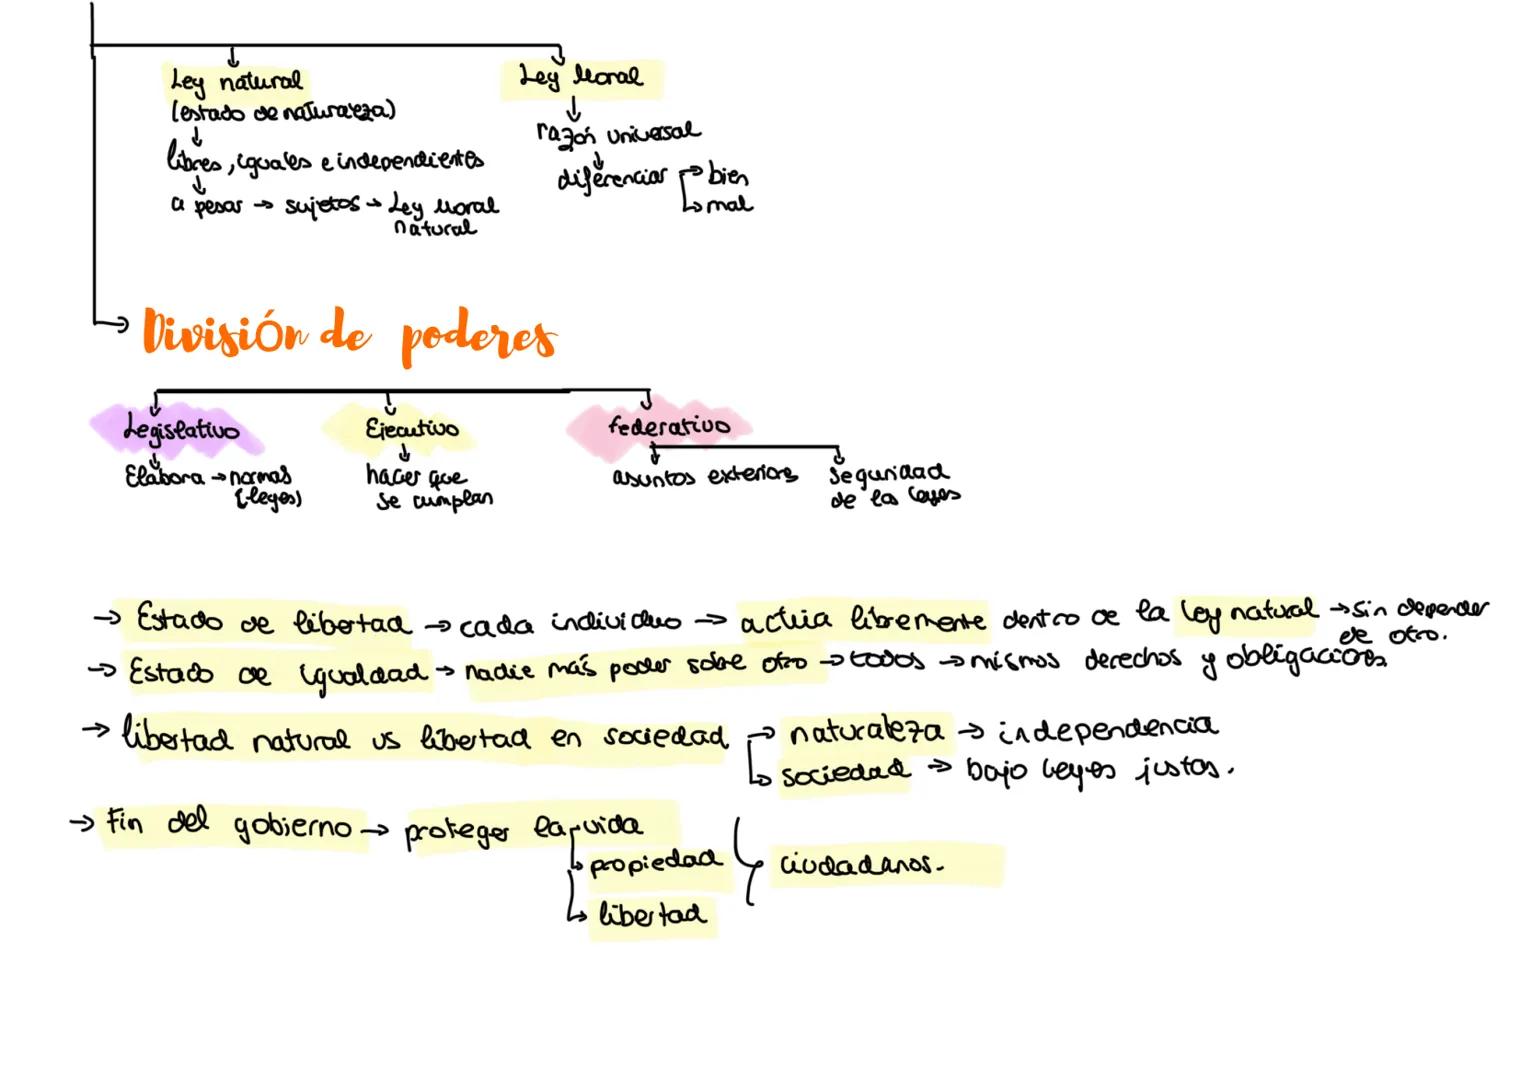 Ley natural
(estado de naturaleza)
↓
libres, iguales e independientes
↓
a pesar → sujetos → Ley Moral
natural
Ley Moral
↓
razón universal
↓
diferenciar → bien
→ mal
→ División de poderes
Legislativo
Elabora → normas
(leyes)
Ejecutivo
↓
hacer que
se cumplan
federativo
asuntos exteriores
Seguridad
de las leyes
→ Estado de libertad → cada individuo → actúa libremente dentro de la ley natural → sin depender
de otro.
→ Estado de igualdad → nadie más poder sobre otro → todos → mismos derechos y obligaciones
→ libertad natural vs libertad en sociedad → naturaleza → independencia
→ sociedad → bajo leyes justas.
→ Fin del gobierno → proteger la vida
→ propiedad
→ libertad
ciudadanos.